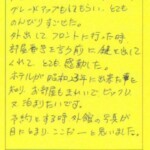 グレードアップもしてもらい、とても
のんびりすごせた。
外出してフロントに行った時
部屋番号を言う前に鍵を出して
くれて とても感動した。
ホテルが昭和 年に出来た事も
知り、お部屋もきれいでビックリ
又 泊りたいです。
予約する時 外観の写真が
目にとまり ここだ ー と思いました。